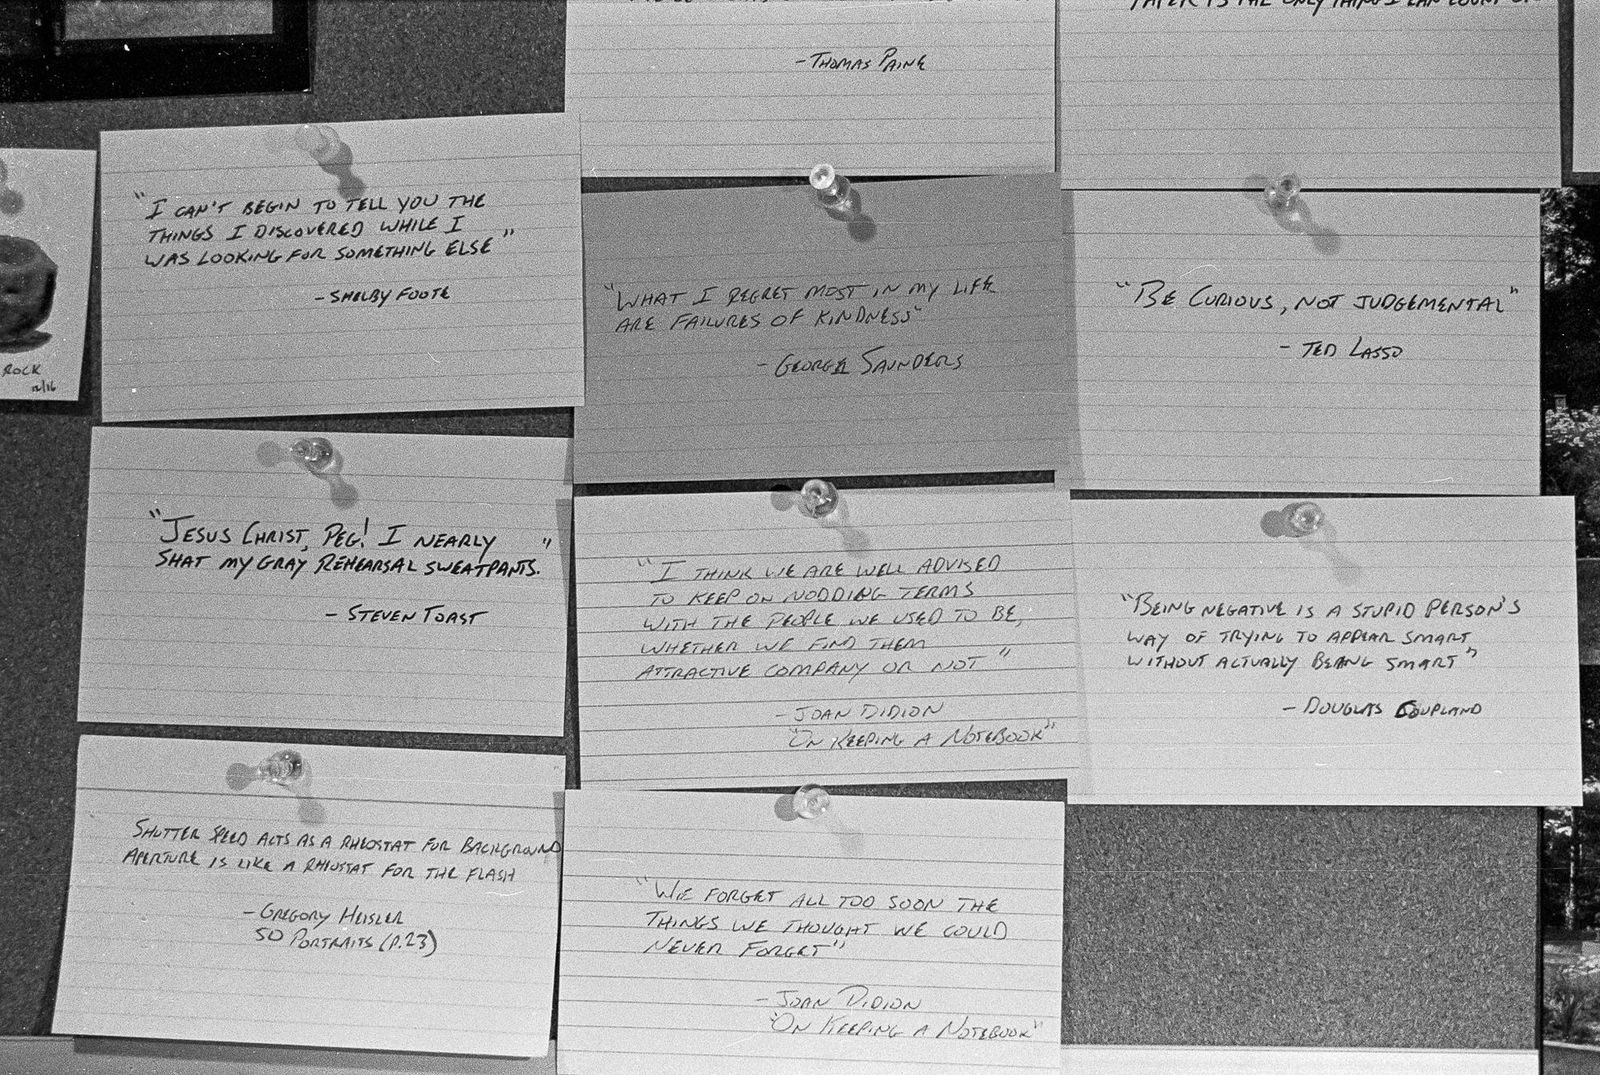 - THOMAS PAINE
PAPER IS THE ONLY THING I CAN COUNT ON
"I CAN'T BEGIN TO TELL YOU THE
THINGS I DISCOVERED WHILE I
WAS LOOKING FOR SOMETHING ELSE"
- SHELBY FOOTE
"WHAT I REGRET MOST IN MY LIFE
ARE FAILURES OF KINDNESS"
- GEORGE SAUNDERS
"BE CURIOUS, NOT JUDGEMENTAL"
- TED LASSO
ROCK
12/16
"JESUS CHRIST, PEG! I NEARLY
SHAT MY GRAY REHEARSAL SWEATPANTS."
- STEVEN TOAST
"I THINK WE ARE WELL ADVISED
TO KEEP ON NODDING TERMS
WITH THE PEOPLE WE USED TO BE,
WHETHER WE FIND THEM
ATTRACTIVE COMPANY OR NOT"
- JOAN DIDION
"ON KEEPING A NOTEBOOK"
"BEING NEGATIVE IS A STUPID PERSON'S
WAY OF TRYING TO APPEAR SMART
WITHOUT ACTUALLY BEING SMART"
- DOUGLAS COUPLAND
SHUTTER SPEED ACTS AS A RHEOSTAT FOR BACKGROUND
APERTURE IS LIKE A RHEOSTAT FOR THE FLASH
- GREGORY HEISLER
50 PORTRAITS (P.23)
"WE FORGET ALL TOO SOON THE
THINGS WE THOUGHT WE COULD
NEVER FORGET"
- JOAN DIDION
"ON KEEPING A NOTEBOOK"